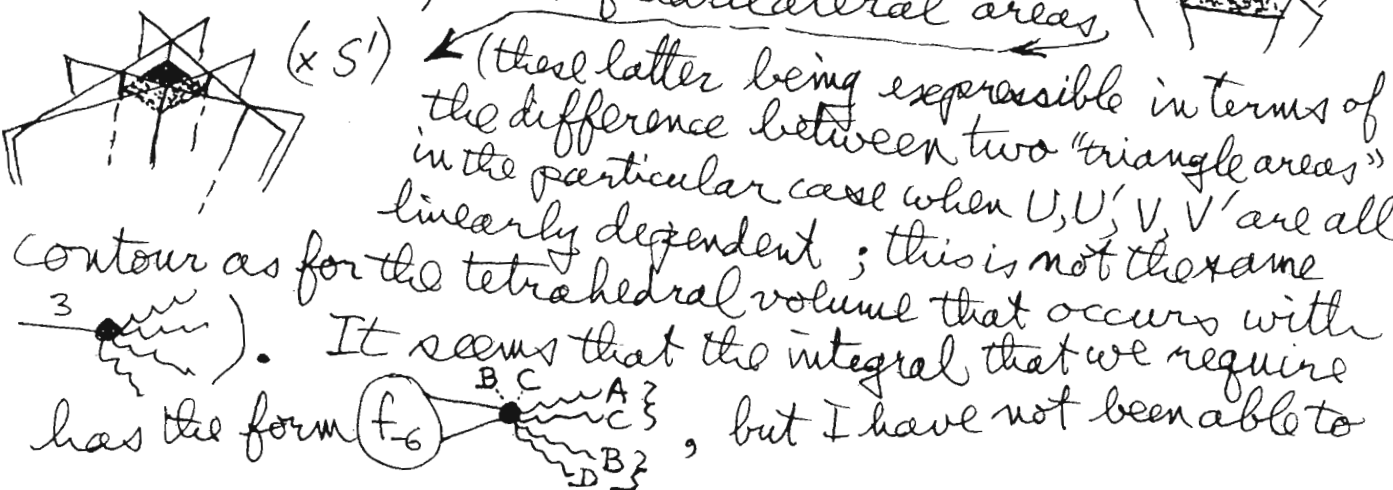 quadrilateral areas,
(× S¹) (these latter being expressible in terms of
the difference between two "triangle areas"
in the particular case when U, U', V, V' are all
linearly dependent ; this is not the same
contour as for the tetrahedral volume that occurs with
3 ). It seems that the integral that we require
has the form f₋₆ B C A C B D , but I have not been able to